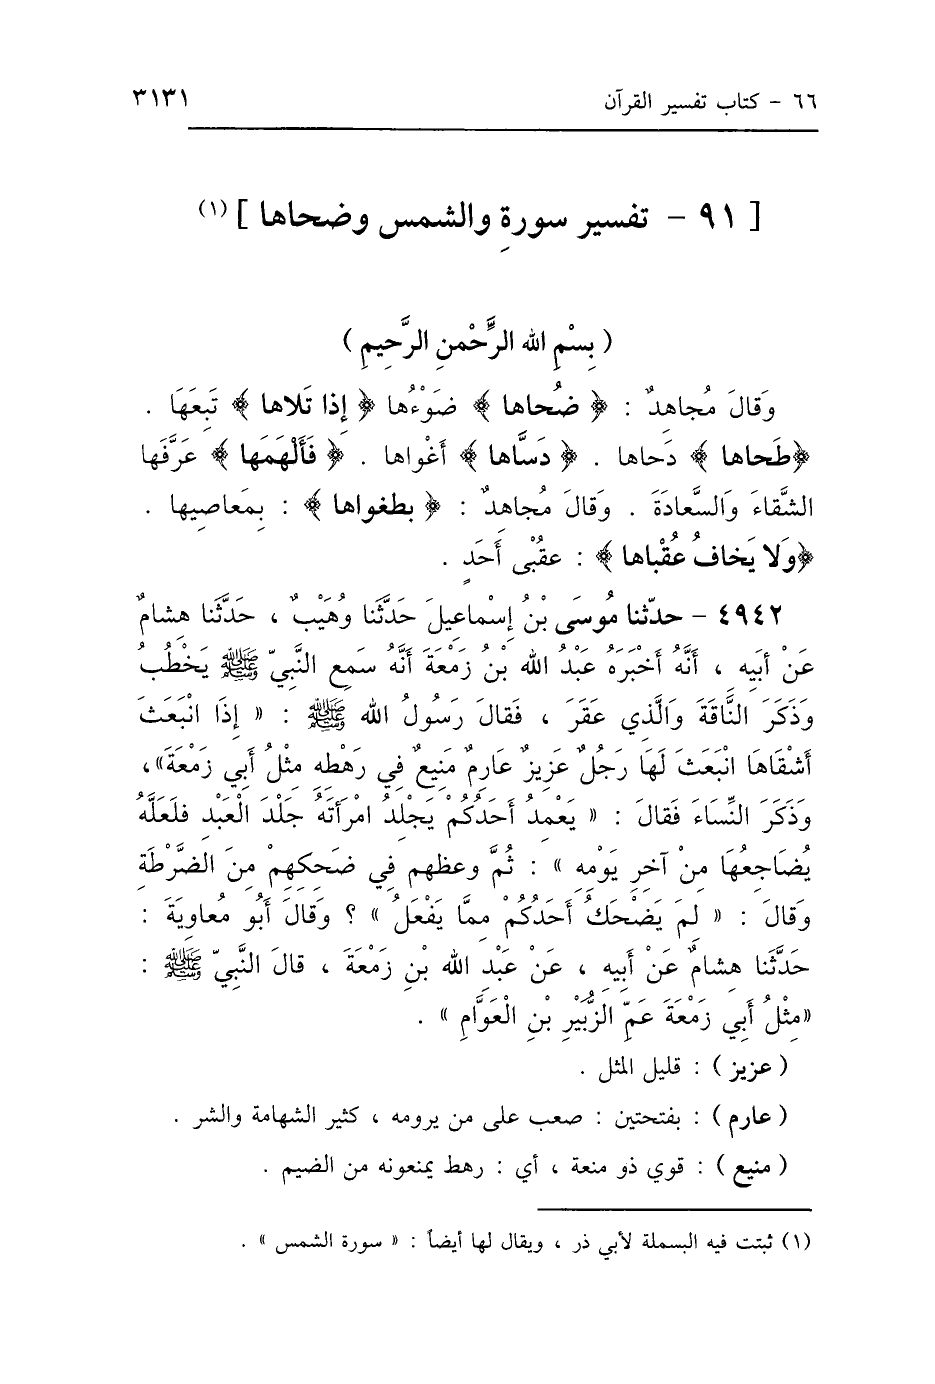 ٦٦ - كتاب تفسير القرآن ٣١٣١
[ ٩١ - تفسير سورةِ والشمس وضحاها ] (١)
( بِسْمِ الله الرَّحْمنِ الرَّحِيمِ )
وَقالَ مُجاهِدٌ : ﴿ ضُحاها ﴾ ضَوْءُها ﴿ إذا تَلاها ﴾ تَبِعَهَا .
﴿طَحاها ﴾ دَحاها . ﴿ دَسَّاها ﴾ أَغْواها . ﴿ فَأَلْهَمَها ﴾ عَرَّفَها
الشَّقاءَ وَالسَّعادَةَ . وَقالَ مُجاهِدٌ : ﴿ بطغواها ﴾ : بِمَعاصِيها .
﴿وَلا يَخافُ عُقْباها ﴾ : عقْبْى أَحَدٍ .
٤٩٤٢ - حدّثنا مُوسَى بْنُ إسْماعِيلَ حَدَّثَنا وُهَيْبٌ ، حَدَّثَنا هِشامٌ
عَنْ أَبِيهِ ، أَنَّهُ أَخْبَرَهُ عَبْدُ الله بْنُ زَمْعَةَ أَنَّهُ سَمِع النَّبِيّ ﷺ يَخْطُبُ
وَذَكَرَ النَّاقَةَ وَالَّذِي عَقَرَ ، فَقالَ رَسُولُ الله ﷺ : « إذَا انْبَعَثَ
أَشْقَاهَا انْبَعَثَ لَهَا رَجُلٌ عَزِيزٌ عَارِمٌ مَنِيعٌ فِي رَهْطِهِ مِثْلُ أَبِي زَمْعَةَ»،
وَذَكَرَ النِّسَاءَ فَقالَ : « يَعْمِدُ أَحَدُكُمْ يَجْلِدُ امْرَأَتَهُ جَلْدَ الْعَبْدِ فلَعَلَّهُ
يُضَاجِعُهَا مِنْ آخِرِ يَوْمِهِ » : ثُمَّ وعظهم فِي ضَحِكِهِمْ مِنَ الضَّرْطَةِ
وَقالَ : « لِمَ يَضْحَكُ أَحَدُكُمْ مِمَّا يَفْعَلُ » ؟ وَقالَ أَبُو مُعاوِيَةَ :
حَدَّثَنا هِشامٌ عَنْ أَبِيهِ ، عَنْ عَبْدِ الله بْنِ زَمْعَةَ ، قالَ النَّبِيّ ﷺ :
«مِثْلُ أَبِي زَمْعَةَ عَمِّ الزُّبَيْرِ بْنِ الْعَوَّامِ » .
( عزيز ) : قليل المثل .
( عارم ) : بفتحتين : صعب على من يرومه ، كثير الشهامة والشر .
( منيع ) : قوي ذو منعة ، أي : رهط يمنعونه من الضيم .
(١) ثبتت فيه البسملة لأبي ذر ، ويقال لها أيضاً : « سورة الشمس » .